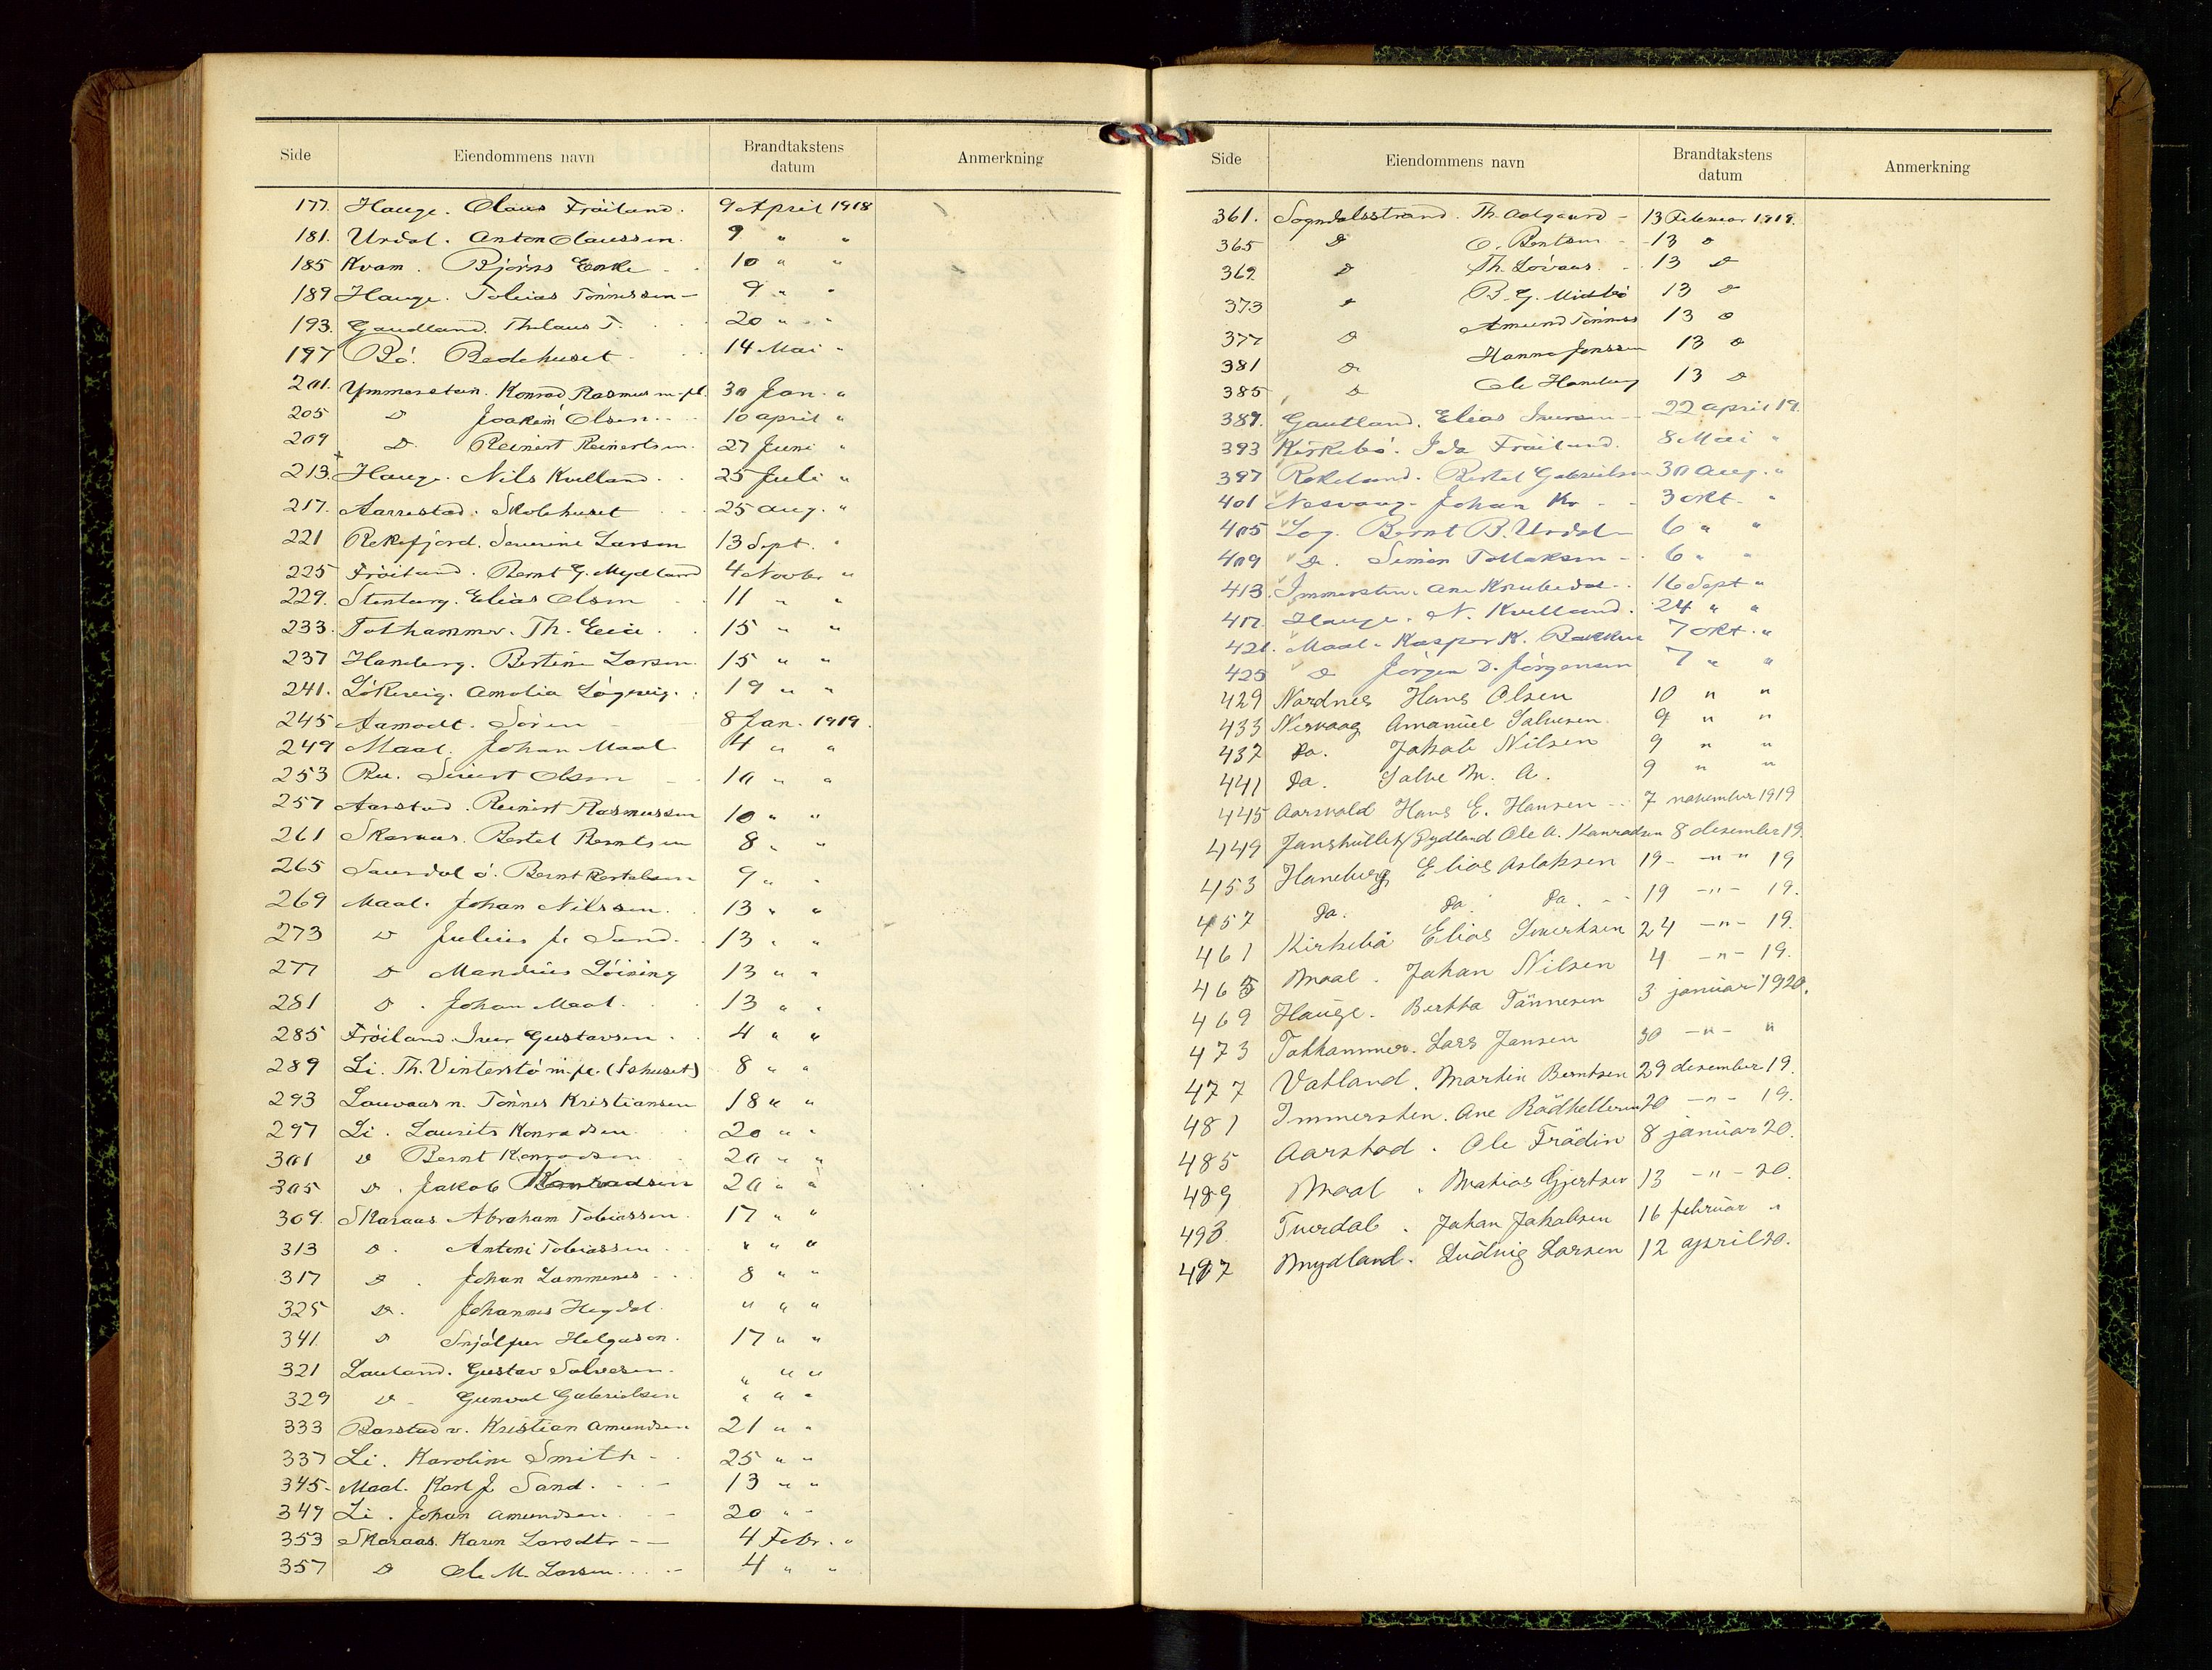 Side Eiendommens navn Brandtakstens datum Anmerkning
177. Hauge. Olaus Fröiland. 9 April 1918
181. Urdal. Anton Olaussen. 9 " "
185 Kvam. Bjórns Enke 10 " "
189 Hauge. Tobias Tönnessen - 9 " "
193. Gaudland. Thelaus T. 20 " "
197 Bö. Bedehuset 14 Mai "
201. Ymmerstein. Konrad Rasmussen m.fl. 30 Jan. "
205 D Joakim Olsen 10 april "
209 D. Reinert Reinertsen. 27 Juni "
213. Hauge. Nils Kvelland. 25 Juli "
217. Aarrestad. Skolehuset 25 aug. "
221 Rekefjord. Severine Larsen 13 Sept. "
225 Fröiland. Bernt G. Mydland 4 Novbr "
229. Stenberg. Elias Olsen 11 " "
233. Tothammer. Th. Eeie. 15 " "
237 Haneberg. Bertine Larsen. 15 " "
241. Lökveig. Amalia Lögveig. 19 " "
245 Aamodt. Sören 8 Jan. 1919.
249 Maal. Johan Maal 4 " "
253 Ru. Sivert Olsen 10 " "
257 Aarstad. Reinert Rasmussen 10 " "
261 Skaraas. Bertel Berntsen 8 " "
265 Saurdal ö. Bernt Bertelsen 9 " "
269 Maal. Johan Nilssen. 13 " "
273 D Julius fr Sand. 13 " "
277 D Mandius Löining 13 " "
281 D. Johan Maal. 13 " "
285 Fröiland. Iver Gustavsen. 4 " "
289 Li. Th. Vinterstö m.fl. (Ishuset) 8 " "
293 Lauvaas n. Tönnes Kristiansen 18 " "
297 Li. Laurits Konradsen. 20 " "
301 D Bernt Konradsen 20 " "
305 D. Jakob Konradsen 20 " "
309. Skaraas Abraham Tobiassen. 17 " "
313 D. Antoni Tobiassen " " "
317 D. Johan Lammenes 8 " "
325 D. Johannes Hegdal. " " "
341. D Snjólfur Helgason. 17 " "
321 Lauland. Gustav Salvesen. " " "
329 D - Gunval Gabrielsen " " "
333 Barstad v. Kristian Amundsen 21 " "
337 Li. Karoline Smith - 25 " "
345 - Maal. Karl J. Sand. 13 " "
349 Li. Johan Amundsen. 20 " "
353 Skaraas. Karen Larsdtr - - 4 Febr. "
357 D Ole M. Larsen. 4 " "
Side Eiendommens navn Brandtakstens datum Anmerkning
361. Sogndalsstrand. Th. Aalgaard - 13 Februar 1919.
365 D O. Bentsen - 13 D
369 D Th. Lövaas. 13 D
373 D B. G. Midbö 13 D
377 D Amund Tönnes 13 D
381 D Hanna Jenssen 13 D
385 D Ole Haneberg 13 D
389. Gautland. Elias Iversen - 22 april 19.
393 Kirkebö. Ida Fröiland. 8 Mai "
397 Rekeland. Bertel Gabrielsen 30 aug. "
401 Nesvaag. Johan Kr 3 okt. "
405 Log. Bernt B. Urdal - 6 " "
409 D. Simon Tollaksen - 6 " "
413. Immerstein. Ane Knubedal 16 Sept "
417. Hauge. N. Kvelland. 24 " "
421. Maal. Kasper K. Bakken 7 okt. "
425 D Jörgen D. Jörgensen 7 " "
429 Nordnes Hans Olsen 10 " "
433 Nesvaag Amanuel Salvesen. 9 " "
437 Do. Jakob Nilsen 9 " "
441 Do. Salve M. A. 9 " "
445 Aarsvold Hans E. Hansen 7 november 1919
449 Jonshullet / Rydland Ole A. Konradsen 8 desember 19.
453 Haneberg Elias Aslaksen 19 - " " 19
457 Do. Do. Do. 19 - " - 19.
461 Kirkebö Elias Sivertsen 24 - " - 19.
465 Maal. Johan Nilsen 4 - " - 19.
469 Hauge. Bertha Tönnesen 3 januar 1920.
473 Tothammer. Lars Jansen 30 - " - "
477 Vatland. Martin Berntsen 29 desember 19.
481 Immerstein. Ane Rödhelleren 20 - " - 19.
485 Aarstad. Ole Frödin 8 januar 20.
489 Maal. Mathias Gjertsen 13 - " - 20.
493 Tuerdal. Johan Jakobsen 16 februar "
497 Mydland. Ludvig Larsen 12 april 20.